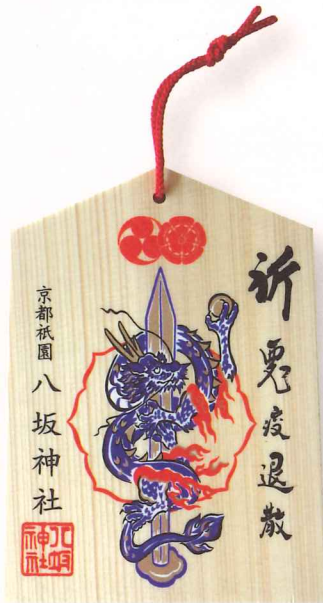 祈
鬼疫退散
京都祇園
八坂神社
八坂
神社